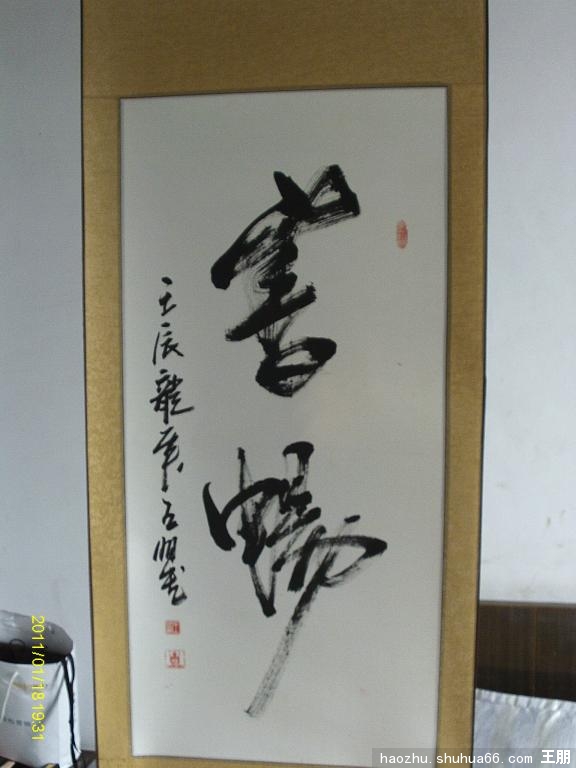 書
暢
壬辰龍年王朋書
2011/01/18 19:31
haozhu.shuhua66.com 王朋